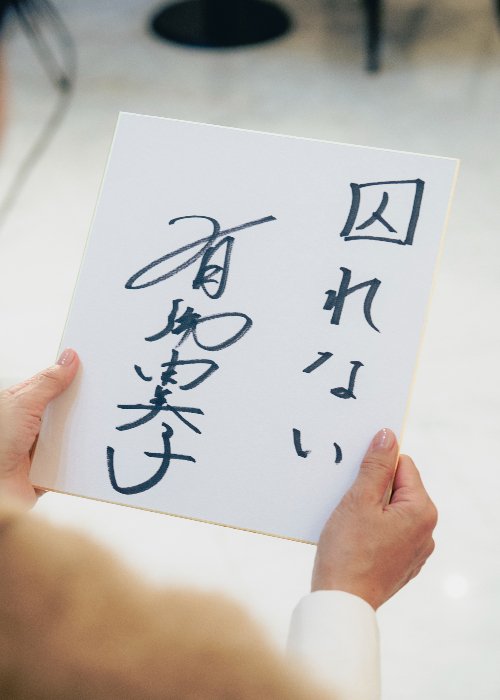 囚れない
有働由美子